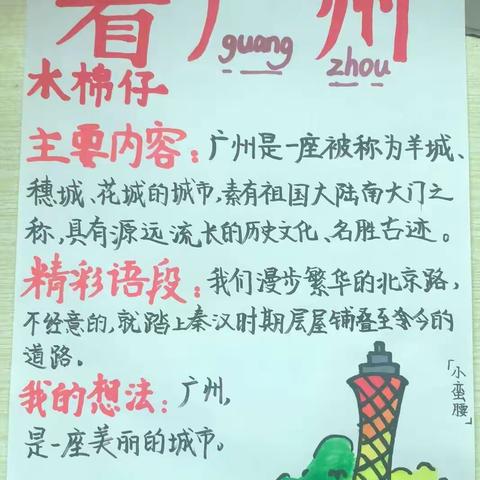 看广州
guang zhou
水棉仔
主要内容：广州是一座被称为羊城、
穗城、花城的城市，素有祖国大陆南大门之
称，具有源远流长的历史文化、名胜古迹。
精彩语段：我们漫步繁华的北京路，
不经意的，就踏上秦汉时期层层铺叠至今的
道路。
我的想法：广州，
是一座美丽的城市。
「小蛮腰」